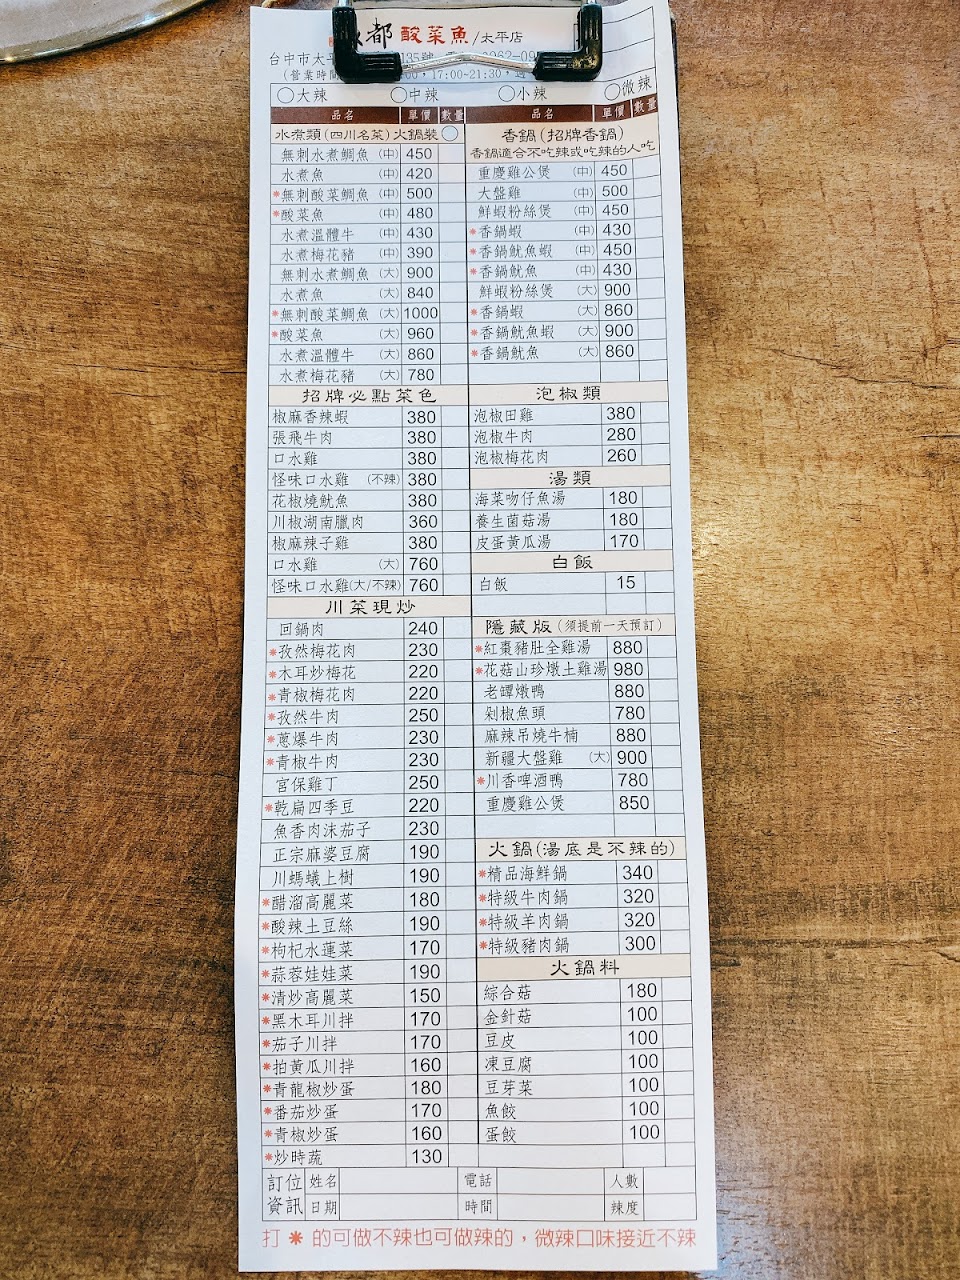 都 酸菜魚/太平店
台中市太平 135號 0962-09
(營業時間 00,17:00~21:30,週
○大辣 ○中辣 ○小辣 ○微辣
品名 單價 數量
水煮類(四川名菜)火鍋裝○
無刺水煮鯛魚 (中) 450
水煮魚 (中) 420
*無刺酸菜鯛魚 (中) 500
*酸菜魚 (中) 480
水煮溫體牛 (中) 430
水煮梅花豬 (中) 390
無刺水煮鯛魚 (大) 900
水煮魚 (大) 840
*無刺酸菜鯛魚 (大) 1000
*酸菜魚 (大) 960
水煮溫體牛 (大) 860
水煮梅花豬 (大) 780
招牌必點菜色
椒麻香辣蝦 380
張飛牛肉 380
口水雞 380
怪味口水雞 (不辣) 380
花椒燒魷魚 380
川椒湖南臘肉 360
椒麻辣子雞 380
口水雞 (大) 760
怪味口水雞(大/不辣) 760
川菜現炒
回鍋肉 240
*孜然梅花肉 230
*木耳炒梅花 220
*青椒梅花肉 220
*孜然牛肉 250
*蔥爆牛肉 230
*青椒牛肉 230
宮保雞丁 250
*乾扁四季豆 220
魚香肉沫茄子 230
正宗麻婆豆腐 190
川螞蟻上樹 190
*醋溜高麗菜 180
*酸辣土豆絲 190
*枸杞水蓮菜 170
*蒜蓉娃娃菜 190
*清炒高麗菜 150
*黑木耳川拌 170
*茄子川拌 170
*拍黃瓜川拌 160
*青龍椒炒蛋 180
*番茄炒蛋 170
*青椒炒蛋 160
*炒時蔬 130
品名 單價 數量
香鍋(招牌香鍋)
香鍋適合不吃辣或吃辣的人吃
重慶雞公煲 (中) 450
大盤雞 (中) 500
鮮蝦粉絲煲 (中) 450
*香鍋蝦 (中) 430
*香鍋魷魚蝦 (中) 450
*香鍋魷魚 (中) 430
鮮蝦粉絲煲 (大) 900
*香鍋蝦 (大) 860
*香鍋魷魚蝦 (大) 900
*香鍋魷魚 (大) 860
泡椒類
泡椒田雞 380
泡椒牛肉 280
泡椒梅花肉 260
湯類
海菜吻仔魚湯 180
養生菌菇湯 180
皮蛋黃瓜湯 170
白飯
白飯 15
隱藏版(須提前一天預訂)
*紅棗豬肚全雞湯 880
*花菇山珍燉土雞湯 980
老罈燉鴨 880
剁椒魚頭 780
麻辣吊燒牛楠 880
新疆大盤雞 (大) 900
*川香啤酒鴨 780
重慶雞公煲 850
火鍋(湯底是不辣的)
*精品海鮮鍋 340
*特級牛肉鍋 320
*特級羊肉鍋 320
*特級豬肉鍋 300
火鍋料
綜合菇 180
金針菇 100
豆皮 100
凍豆腐 100
豆芽菜 100
魚餃 100
蛋餃 100
訂位資訊 姓名 電話 人數
日期 時間 辣度
打 * 的可做不辣也可做辣的，微辣口味接近不辣